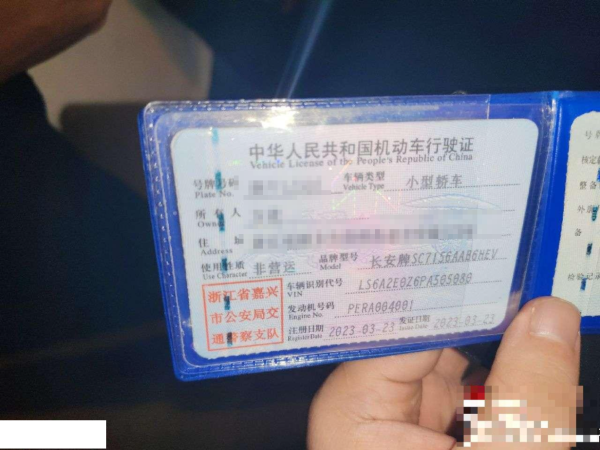 中华人民共和国机动车行驶证
Vehicle License of the People's Republic of China
号牌号码
Plate No.
车辆类型 小型轿车
Vehicle Type
所有人
Owner
住 址
Address
使用性质 非营运
Use Character
品牌型号 长安牌SC7156AAB6HEV
Model
车辆识别代号 LS6A2E0Z6PA505080
VIN
发动机号码 PERA004001
Engine No.
注册日期 2023-03-23
Register Date
发证日期 2023-03-23
Issue Date
浙江省嘉兴
市公安局交
通警察支队
号
核定
整备
外廓
备
检验记录